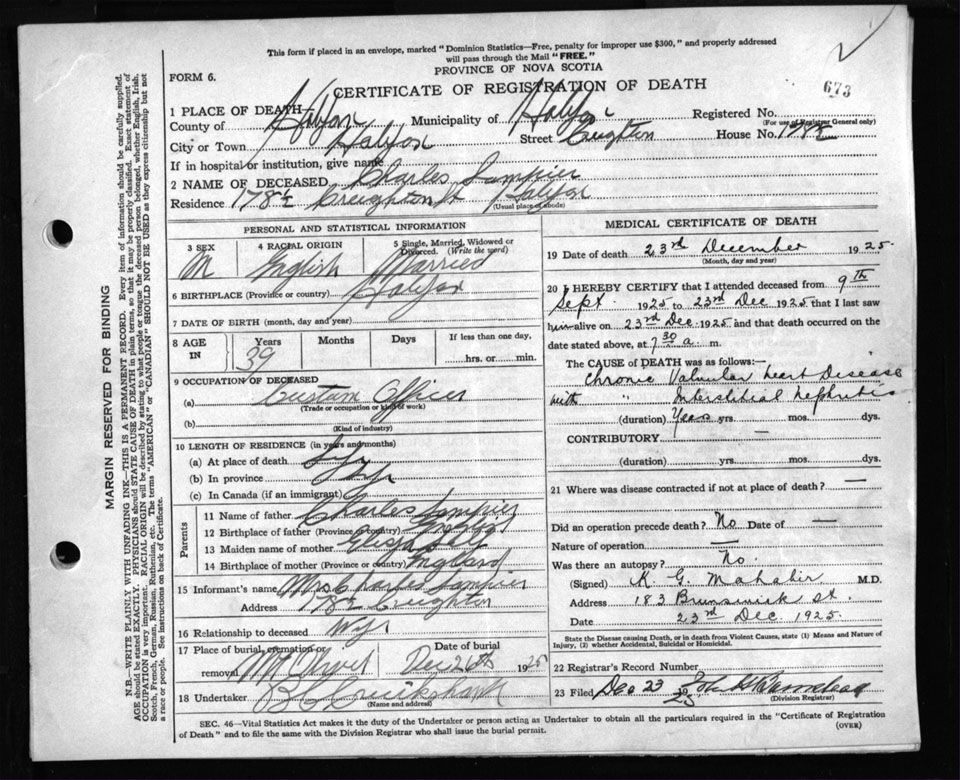 This form if placed in an envelope, marked "Dominion Statistics—Free, penalty for improper use $300," and properly addressed
will pass through the Mail "FREE."
PROVINCE OF NOVA SCOTIA
FORM 6.
CERTIFICATE OF REGISTRATION OF DEATH
673
1 PLACE OF DEATH—
County of Halifax Municipality of Halifax Registered No.
(For use of Registrar General only)
City or Town Halifax Street Creighton House No. 178½
If in hospital or institution, give name
2 NAME OF DECEASED Charles Sampier
Residence 178½ Creighton St Halifax
(Usual place of abode)
PERSONAL AND STATISTICAL INFORMATION
3 SEX M
4 RACIAL ORIGIN English
5 Single, Married, Widowed or Divorced. (Write the word) Married
6 BIRTHPLACE (Province or country) Halifax
7 DATE OF BIRTH (month, day and year)
8 AGE IN Years 39 Months Days If less than one day, hrs. or min.
9 OCCUPATION OF DECEASED
(a) Custom Officer
(Trade or occupation or kind of work)
(b)
(Kind of industry)
10 LENGTH OF RESIDENCE (in years and months)
(a) At place of death Life
(b) In province
(c) In Canada (if an immigrant)
Parents
11 Name of father Charles Sampier
12 Birthplace of father (Province or country) England
13 Maiden name of mother
14 Birthplace of mother (Province or country) England
15 Informant's name Mrs Charles Sampier
Address 178½ Creighton
16 Relationship to deceased Wife
17 Place of burial, cremation or removal Mt Olivet
Date of burial Dec 26th 1925
18 Undertaker Cruikshank
(Name and address)
MEDICAL CERTIFICATE OF DEATH
19 Date of death 23rd December 1925.
(Month, day and year)
20 I HEREBY CERTIFY that I attended deceased from 9th
Sept. 1925 to 23rd Dec. 1925 that I last saw
him alive on 23rd Dec. 1925 and that death occurred on the
date stated above, at 7 30 a. m.
The CAUSE of DEATH was as follows:—
Chronic Valvular heart Disease
with " Interstitial Nephritis
(duration) Years yrs. mos. dys.
CONTRIBUTORY —
(duration) yrs. mos. dys.
21 Where was disease contracted if not at place of death? —
Did an operation precede death? No Date of —
Nature of operation —
Was there an autopsy? No
(Signed) K. G. Mahabir M.D.
Address 183 Brunswick St.
Date 23rd Dec. 1925.
State the Disease causing Death, or in death from Violent Causes, state (1) Means and Nature of
Injury, (2) whether Accidental, Suicidal or Homicidal.
22 Registrar's Record Number
23 Filed Dec 23 1925
(Division Registrar)
SEC. 46—Vital Statistics Act makes it the duty of the Undertaker or person acting as Undertaker to obtain all the particulars required in the "Certificate of Registration
of Death" and to file the same with the Division Registrar who shall issue the burial permit.
(OVER)
MARGIN RESERVED FOR BINDING
N.B.—WRITE PLAINLY WITH UNFADING INK—THIS IS A PERMANENT RECORD. Every item of information should be carefully supplied.
AGE should be stated EXACTLY. PHYSICIANS should STATE CAUSE OF DEATH in plain terms, so that it may be properly classified. Exact statement of
OCCUPATION is very important. RACIAL ORIGIN will be described by stating to what people or tongue the deceased person belonged, whether English, Irish,
Scotch, French, German, Russian, Ruthenian, etc. The terms "AMERICAN" or "CANADIAN" SHOULD NOT BE USED as they express citizenship but not
a race or people. See instructions on back of Certificate.